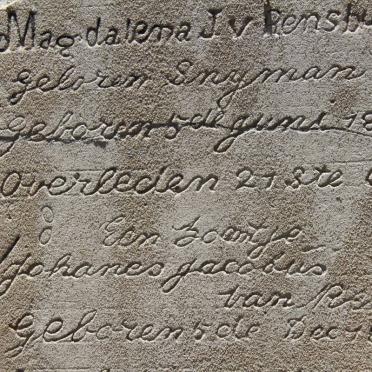 Magdalena J v Rensb
geloren Snyman
Geboren 5de guni 18
Overleden 21ste
Een zoontje
Johanes jacobus
van R
Geboren 5de Dec 18